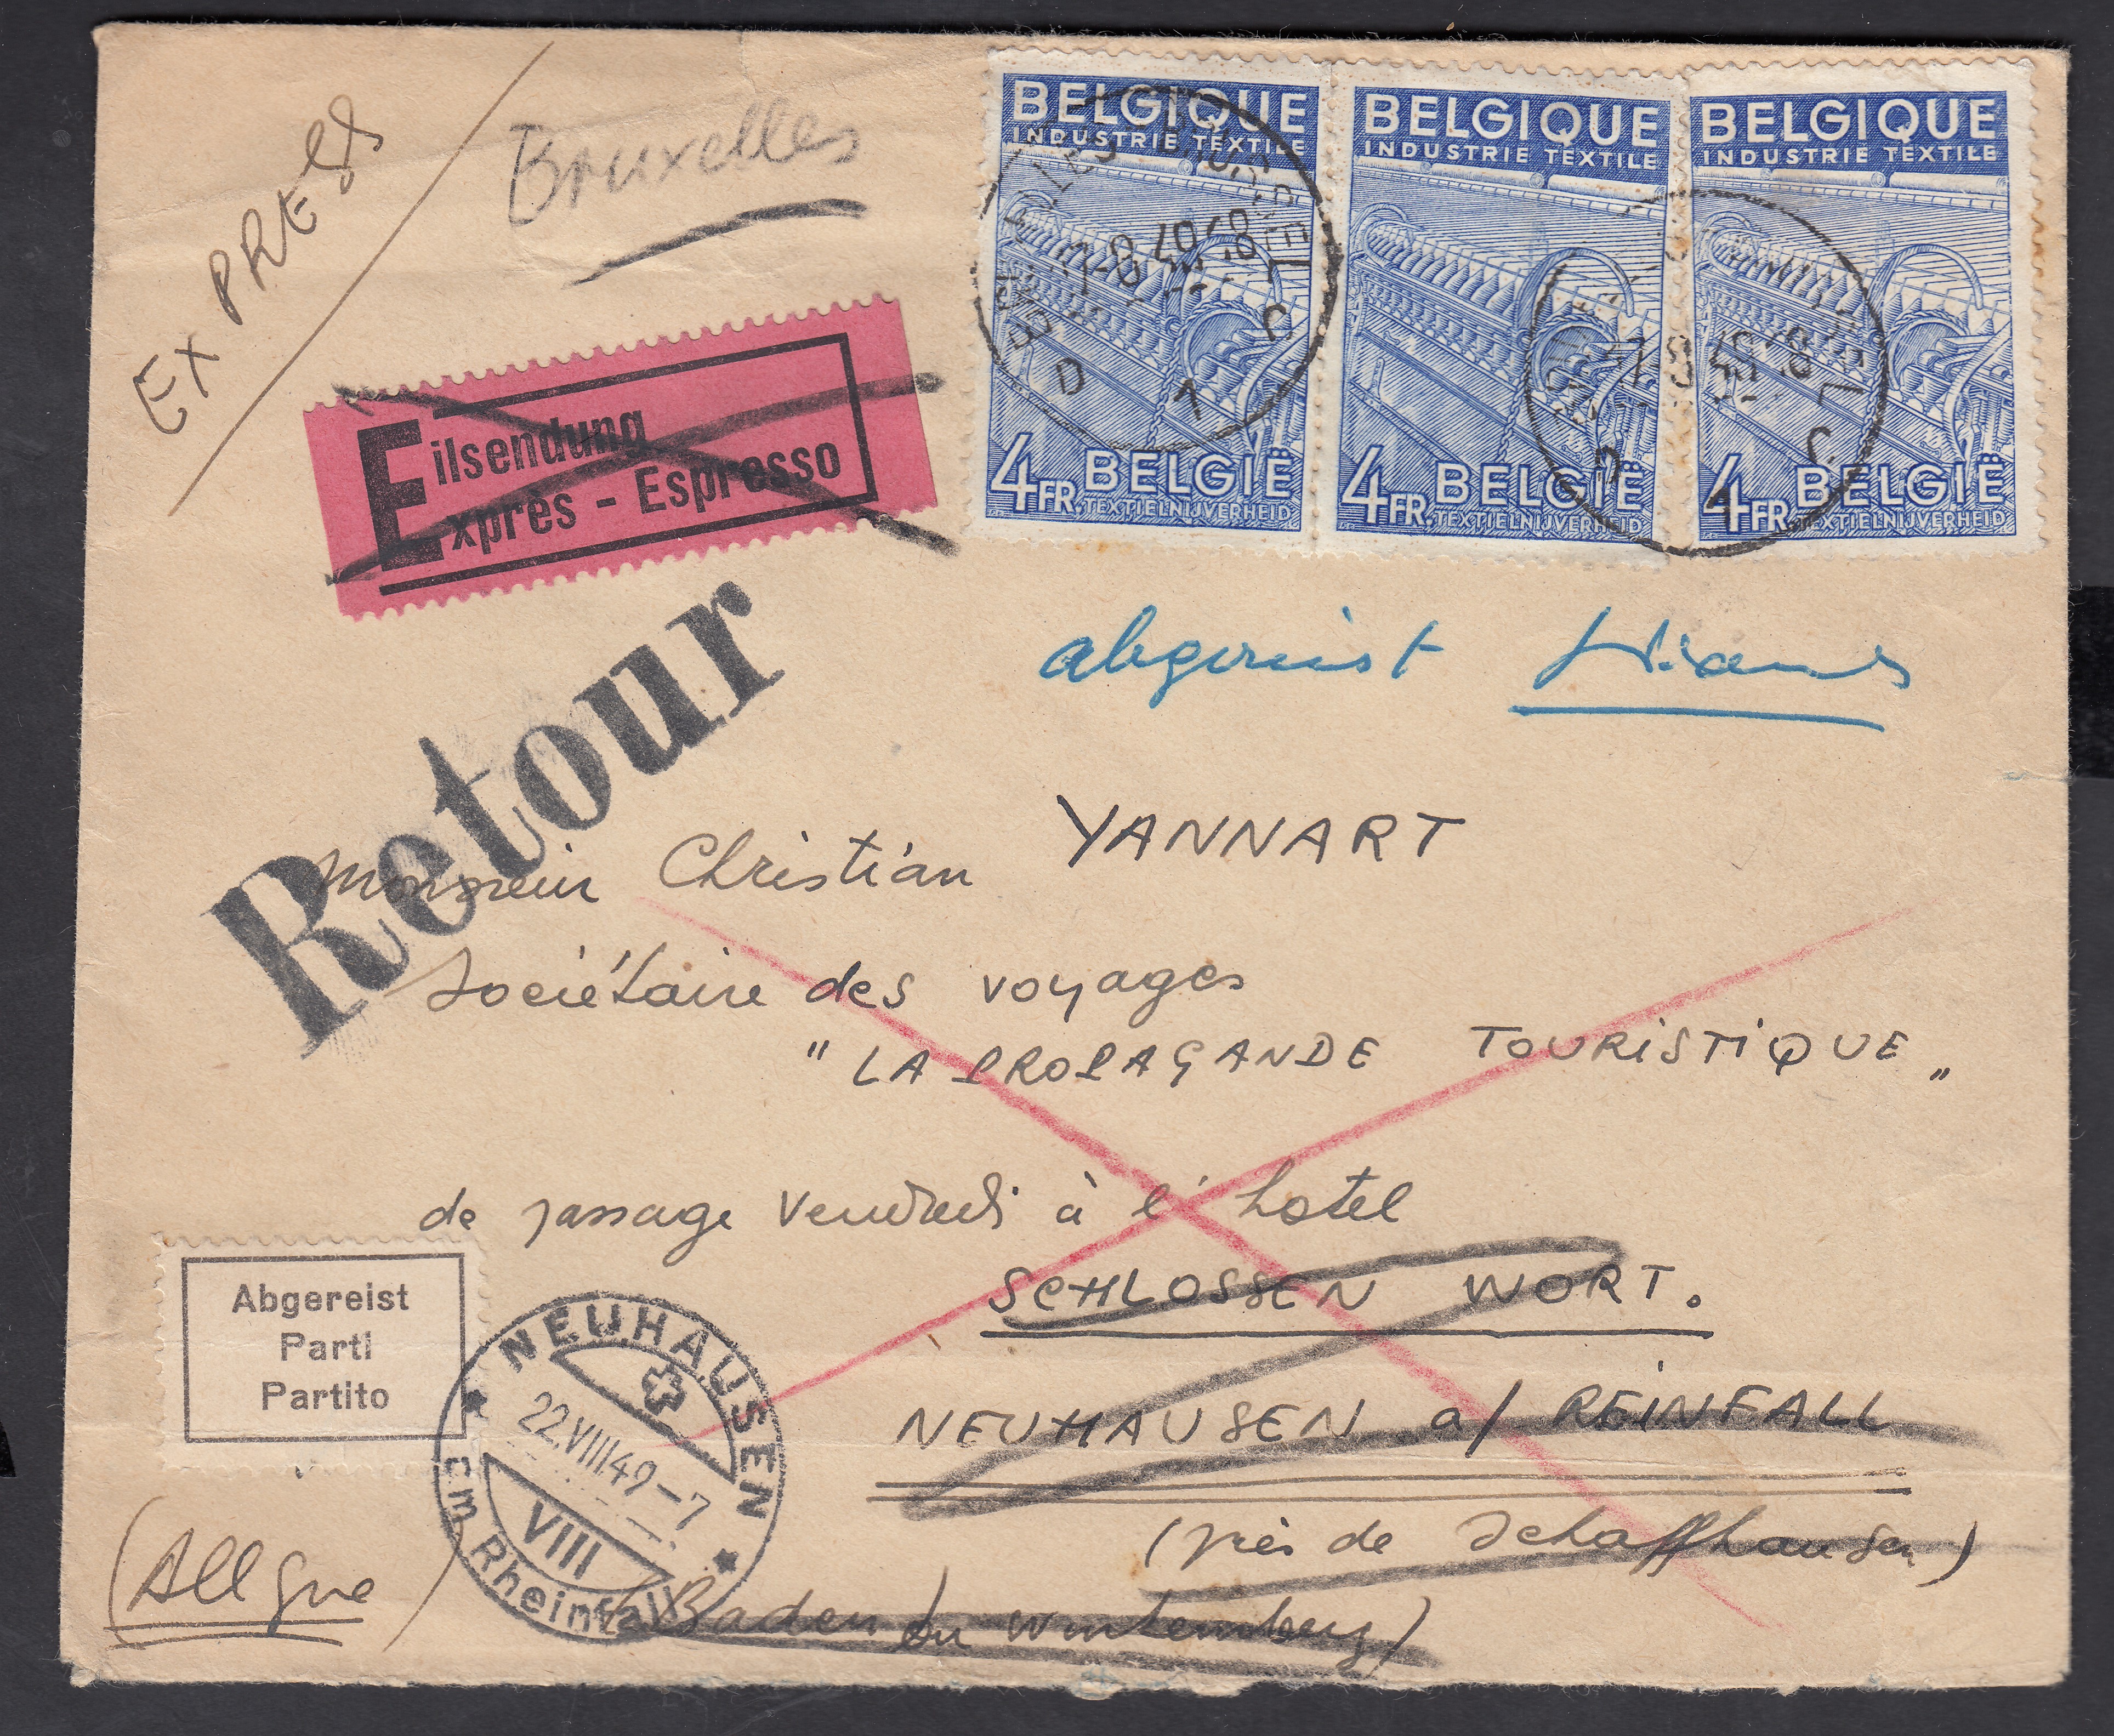 EXPRES
Bruxelles
BELGIQUE
INDUSTRIE TEXTILE
4FR BELGIË
TEXTIELNIJVERHEID
BELGIQUE
INDUSTRIE TEXTILE
4FR BELGIË
TEXTIELNIJVERHEID
BELGIQUE
INDUSTRIE TEXTILE
4FR BELGIË
TEXTIELNIJVERHEID
Eilsendung
Exprès - Espresso
Retour
abgereist
Monsieur Christian YANNART
Sociétaire des voyages
" LA PROPAGANDE TOURISTIQUE "
de passage vendredi à l'hotel
SCHLOSSEN WORT.
NEUHAUSEN a/ REINFALL
(près de Schaffhausen)
(Allgne)
(Baden ou Wurtemberg)
Abgereist
Parti
Partito
NEUHAUSEN
22.VIII.49-7
VIII
am Rheinfall